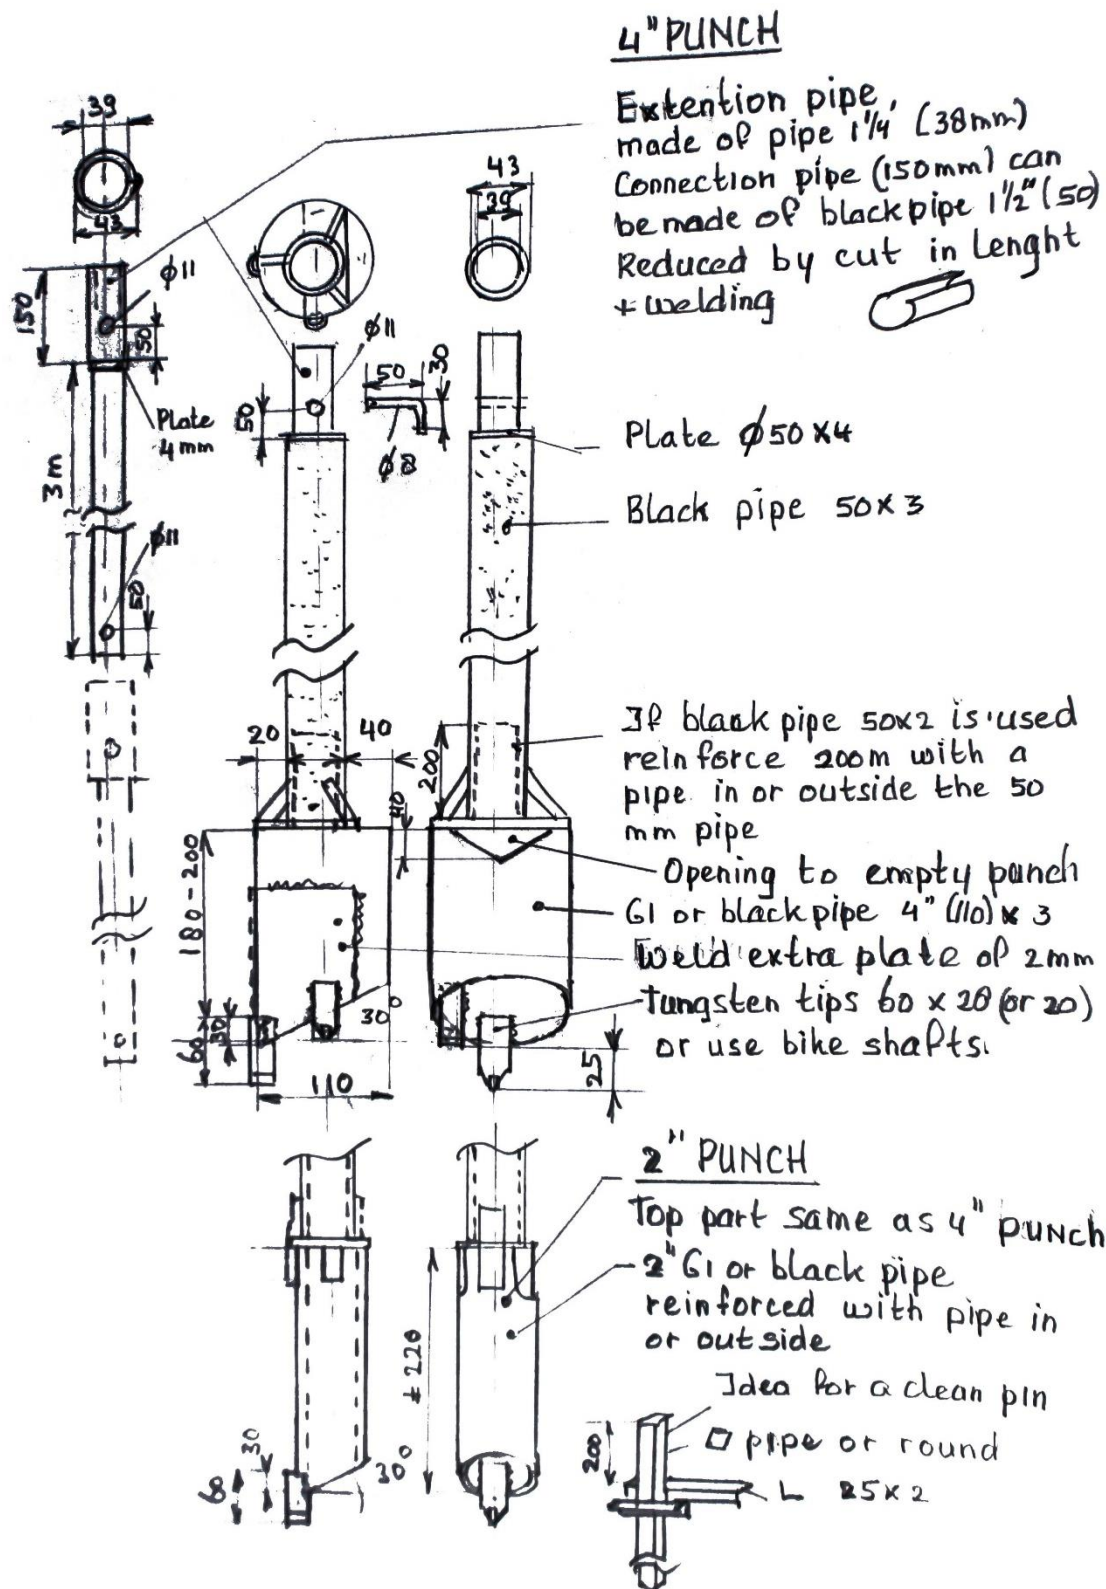 4" PUNCH
Extention pipe,
made of pipe 1 1/4" (38mm)
Connection pipe (150mm) can
be made of black pipe 1 1/2" (50)
Reduced by cut in Lenght
+ welding
39
43
ø11
150
50
Plate
4mm
3m
ø11
50
ø11
50
50
30
ø8
43
39
Plate ø50x4
Black pipe 50x3
20
40
200
40
If black pipe 50x2 is used
reinforce 200m with a
pipe in or outside the 50
mm pipe
Opening to empty punch
GI or black pipe 4" (110) x 3
Weld extra plate of 2mm
Tungsten tips 60 x 20 (or 20)
or use bike shafts.
180-200
30
60
30°
110
25
2" PUNCH
Top part same as 4" PUNCH
2" GI or black pipe
reinforced with pipe in
or outside
± 220
30
30°
Idea for a clean pin
□ pipe or round
200
L 25x2